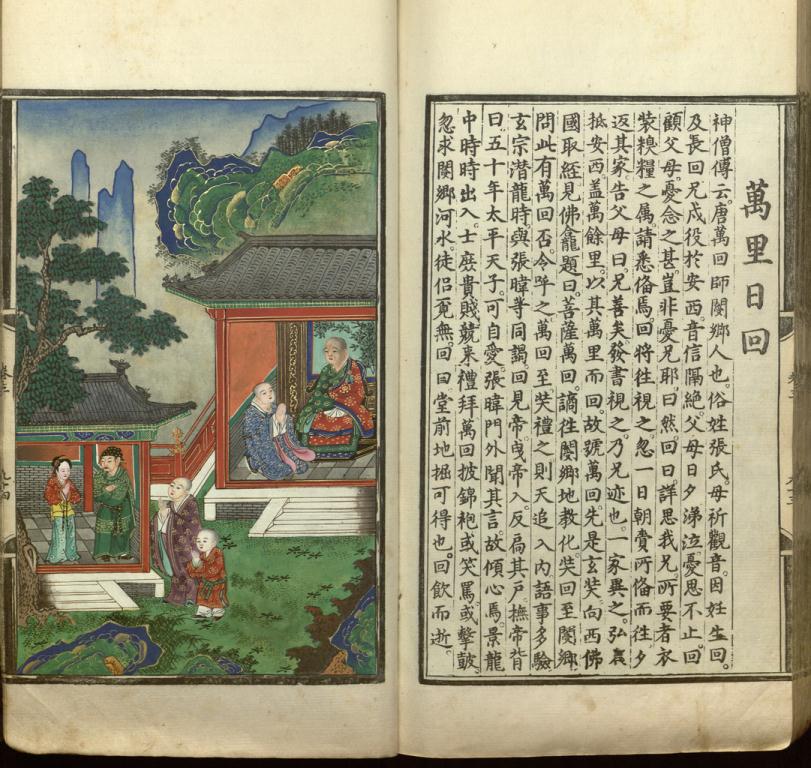 萬里日回
神僧傳云。唐萬回師閿鄉人也。俗姓張氏。母祈觀音。因妊生回。
及長回兄戍役於安西。音信隔絕。父母日夕涕泣憂思不止。回
顧父母憂念之甚。豈非憂兄耶。曰然。回曰。詳思我兄。所要者衣
裝糗糧之属。請悉俻焉。回將往視之。忽一日朝賫所俻而往。夕
返其家。告父母曰。兄善矣。發書視之。乃兄迹也。一家異之。弘農
抵安西。盖萬餘里。以其萬里而回。故號萬回。先是玄奘向西佛
國取經。見佛龕題曰。菩薩萬回。謫往閿鄉地教化。奘回至閿鄉
問此有萬回否。令呼之。萬回至。奘禮之。則天追入內。語事多驗。
玄宗潛龍時。與張暐等同謁。回見帝曳帝入。反扃其户。撫帝背
曰。五十年太平天子。可自愛。張暐門外聞其言。故傾心焉。景龍
中時時出入。士庶貴賤競來禮拜。萬回披錦袍或笑罵或擊鼓。
忽求閿鄉河水。徒侶覓無。回曰。堂前地掘可得也。回飲而逝。
卷三